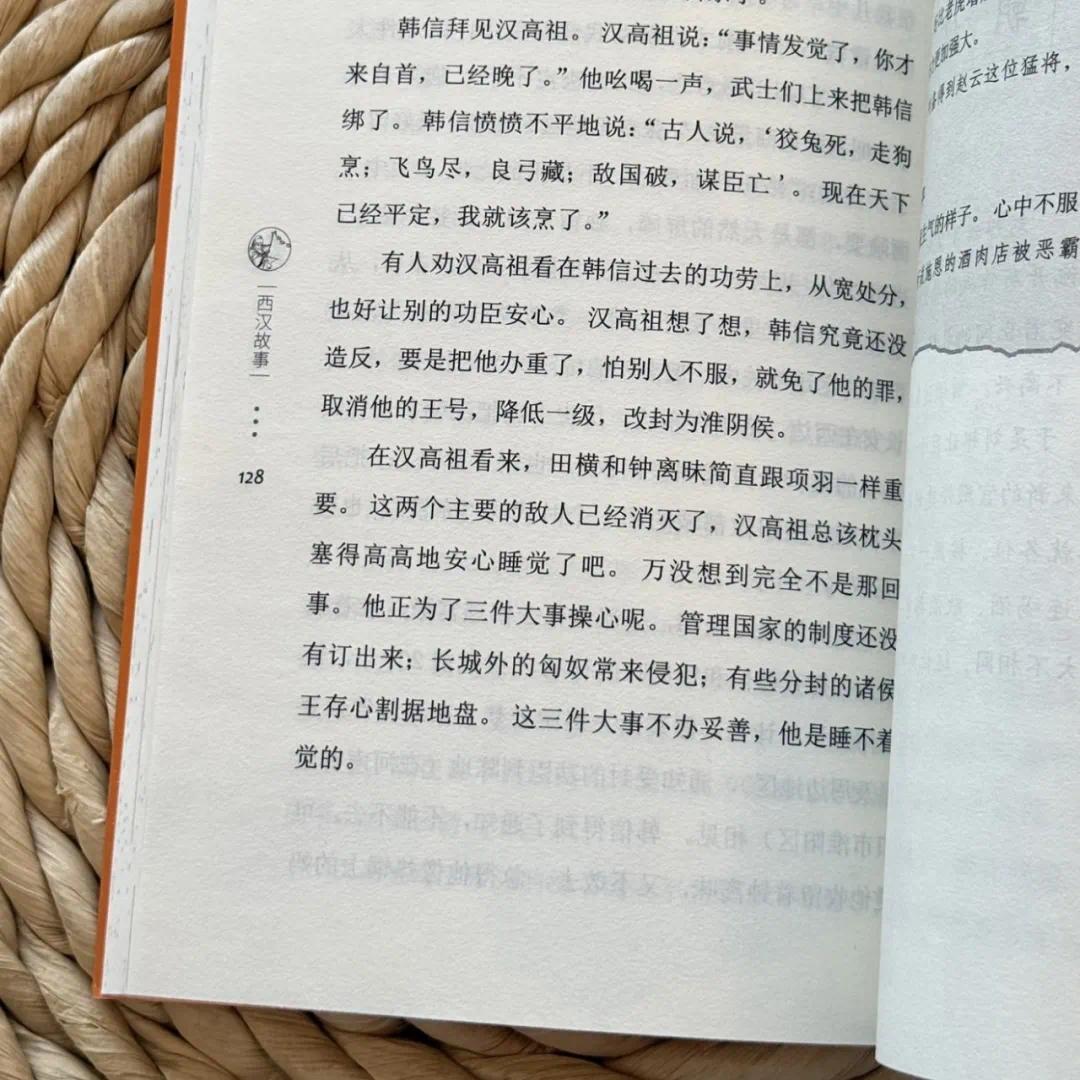 韩信拜见汉高祖。汉高祖说：“事情发觉了，你才
来自首，已经晚了。”他吆喝一声，武士们上来把韩信
绑了。韩信愤愤不平地说：“古人说，‘狡兔死，走狗
烹；飞鸟尽，良弓藏；敌国破，谋臣亡’。现在天下
已经平定，我就该烹了。”
有人劝汉高祖看在韩信过去的功劳上，从宽处分，
也好让别的功臣安心。汉高祖想了想，韩信究竟还没
造反，要是把他办重了，怕别人不服，就免了他的罪，
取消他的王号，降低一级，改封为淮阴侯。
在汉高祖看来，田横和钟离昧简直跟项羽一样重
要。这两个主要的敌人已经消灭了，汉高祖总该枕头
塞得高高地安心睡觉了吧。万没想到完全不是那回
事。他正为了三件大事操心呢。管理国家的制度还没
有订出来；长城外的匈奴常来侵犯；有些分封的诸侯
王存心割据地盘。这三件大事不办妥善，他是睡不着
觉的。
西汉故事
128
更加强大。
得到赵云这位猛将，
生气的样子。心中不服
施恩的酒肉店被恶霸